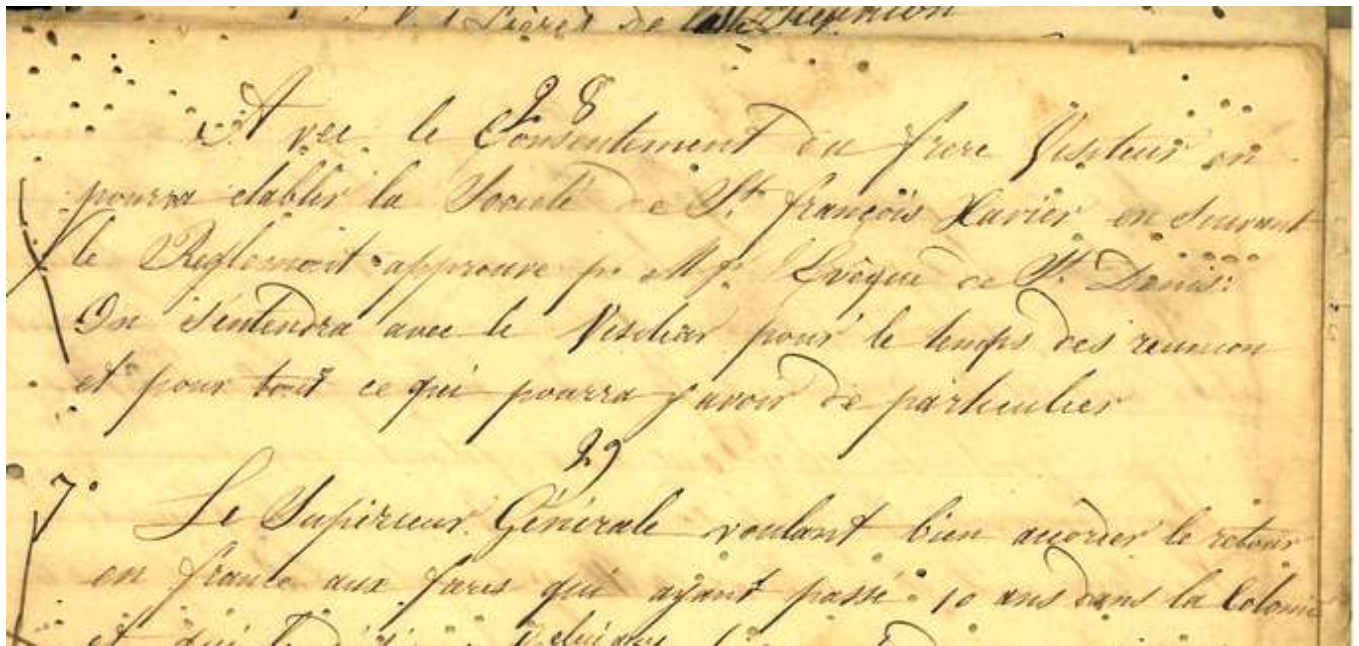 de la Réunion
28
Avec le Consentement du frere Visiteur on
pourra etablir la Société de St. françois Xavier en Suivant
le Reglement approuve pr. Mgr. Evêque de St. Denis.
On s'entendra avec le Visiteur pour le temps des reunion
et pour tout ce qui pourra y avoir de particulier
29
7° Le Supérieur Générale voulant bien accorder le retour
en france aux freres qui ayant passé 10 ans dans la Colonie
et qui